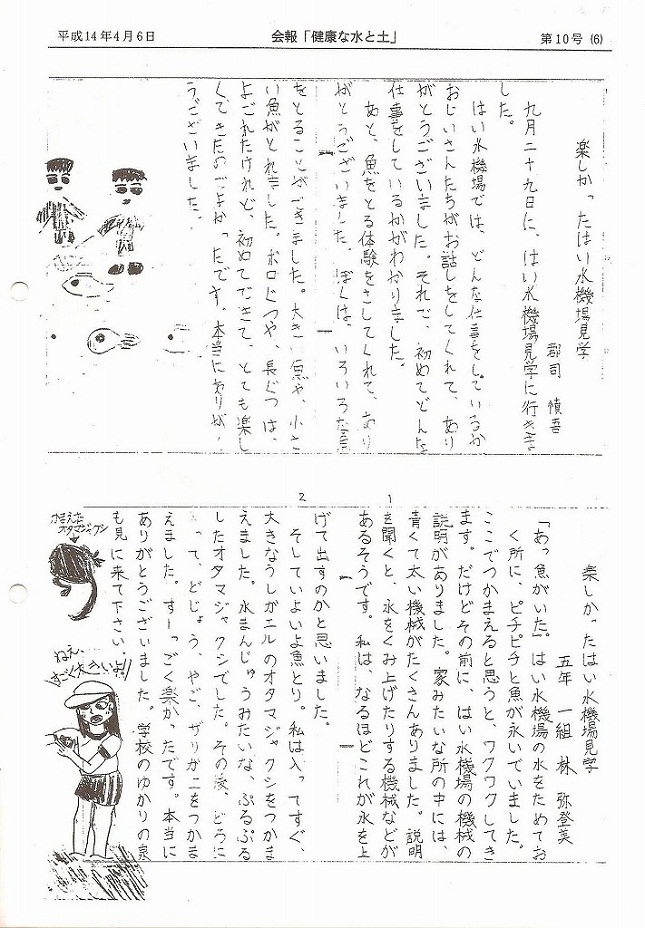 平成14年4月6日
会報「健康な水と土」
第10号 (6)
楽しかったはい水機場見学
郡司 慎吾
九月二十九日に、はい水機場見学に行きま
した。
はい水機場では、どんな仕事をしているか
おじいさんたちがお話しをしてくれて、あり
がとうございました。それで、初めてどんな
仕事をしているかがわかりました。
あと、魚をとる体験をさしてくれて、あり
がとうございました。ぼくは、いろいろな魚
をとることができました。大きい魚や、小さ
い魚がとれました。ボロぐつや、長ぐつは、
よごれたけれど、初めてできて、とても楽し
くできたのでよかったです。本当にありが
うございました。
楽しかったはい水機場見学
五年 一組 林 弥登美
「あっ魚がいた」はい水機場の水をためてお
く所に、ピチピチと魚が永いでいました。
ここでつかまえると思うと、ワクワクしてき
ます。だけどその前に、はい水機場の機械の
説明がありました。家みたいな所の中には、
青くて太い機械がたくさんありました。説明
を聞くと、水をくみ上げたりする機械などが
あるそうです。私は、なるほどこれが水を上
1
2
げて出すのかと思いました。
そしていよいよ魚とり。私は入ってすぐ、
大きなうしがエルのオタマジャクシをつかま
えました。水まんじゅうみたいな、ぷるぷる
したオタマジャクシでした。その後、どろに
って、どじょう、やご、ザリガニをつかま
えました。すーっごく楽かったです。本当に
ありがとうございました。学校のゆかりの泉
も見に来て下さい。
つかまえた
オタマジャクシ
ねえ…
すごく大っきいよ!!